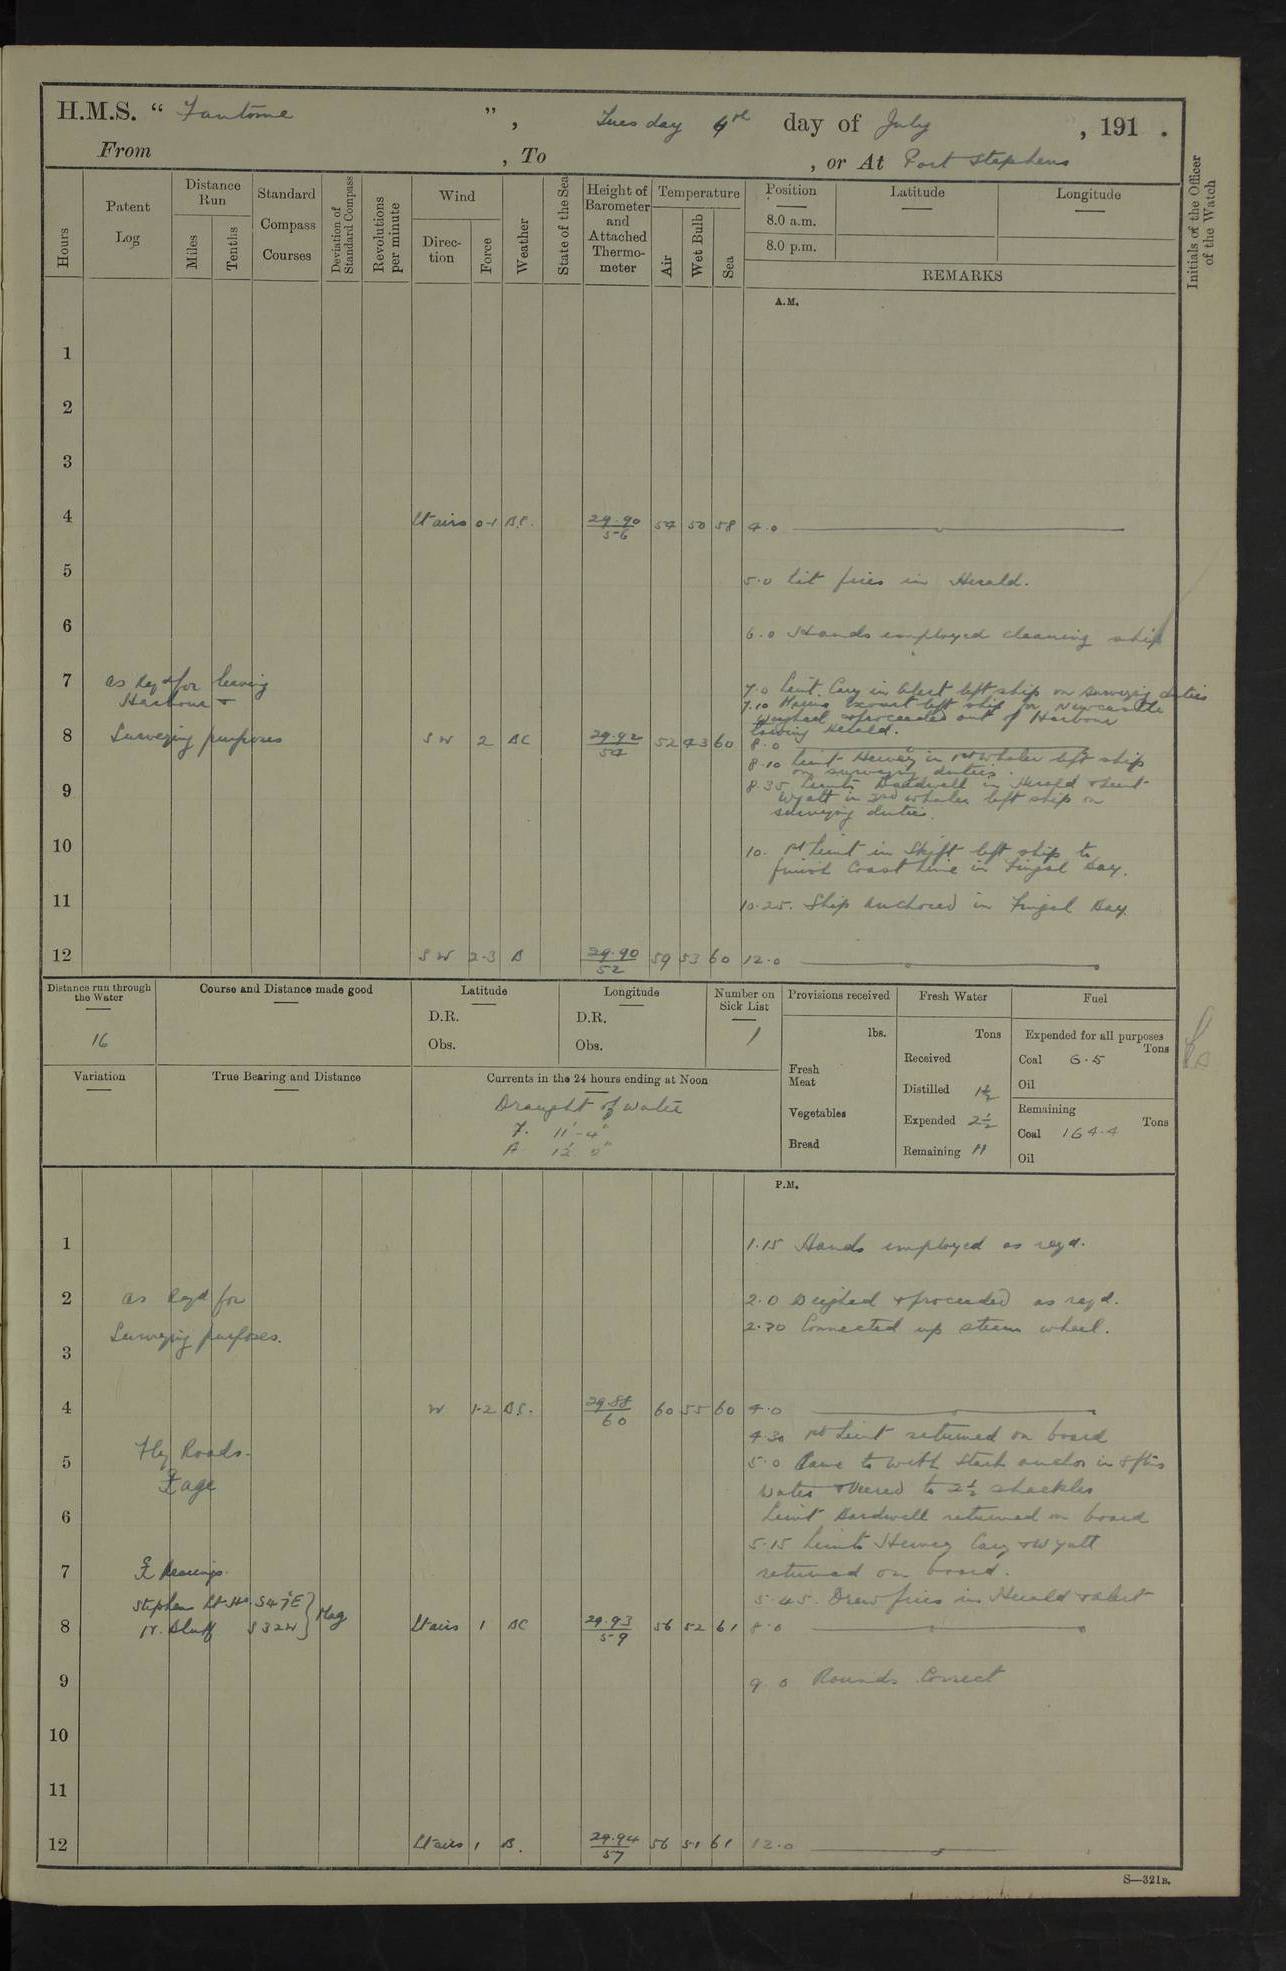 H.M.S. " Fantome ", Tuesday 4th day of July , 191 .
From , To , or At Port Stephens
Hours
Patent Log
Distance Run
Miles
Tenths
Standard Compass Courses
Deviation of Standard Compass
Revolutions per minute
Wind
Direction
Force
Weather
State of the Sea
Height of Barometer and Attached Thermometer
Temperature
Air
Wet Bulb
Sea
Position
8.0 a.m.
8.0 p.m.
Latitude
Longitude
REMARKS
Initials of the Officer of the Watch
A.M.
1
2
3
4 Lt airs 0-1 29.90 54 50 58 4.0
56
5 5.0 Lit fires in Herald.
6 6.0 Hands employed cleaning ship
7 as Reqd for leaving 7.0 Lieut. Cary in Alert left ship on surveying duties
Harbour + 7.10 left ship for Newcastle
Weighed & proceeded out of Harbour
towing Herald.
8 Surveying purposes SW 2 BC 29.92 52 43 60 8.0
54
8.10 Lieut Hervey in 1st Whaler left ship
on surveying duties.
9 8.35 Lieuts Bardwell in Herald & Lieut
Wyatt in 2nd whaler left ship on
surveying duties.
10 10. 1st Lieut in Skiff left ship to
finish Coast Line in Fingal Bay.
11 10.25. Ship anchored in Fingal Bay.
12 SW 2-3 B 29.90 59 53 60 12.0
52
Distance run through the Water
16
Course and Distance made good
Latitude
D.R.
Obs.
Longitude
D.R.
Obs.
Number on Sick List
1
Provisions received
lbs.
Fresh Meat
Vegetables
Bread
Fresh Water
Tons
Received
Distilled 1½
Expended 2½
Remaining 11
Fuel
Expended for all purposes
Tons
Coal 6.5
Oil
Remaining
Tons
Coal 164.4
Oil
Variation
True Bearing and Distance
Currents in the 24 hours ending at Noon
Draught of water
F. 11'-4"
A 12' 0"
P.M.
1 1.15 Hands employed as reqd.
2 as Reqd for 2.0 Weighed & proceeded as reqd.
Surveying purposes. 2.30 Connected up steam wheel.
3
4 W 1-2 29.88 60 55 60 4.0
60
4.30 1st Lieut returned on board
Fly Roads.
5 5.0 Came to with Starb anchor in 8 fms
age water & veered to 2½ shackles
6 Lieut Bardwell returned on board
5.15 Lieuts Hervey Cary & Wyatt
7 Bearings. returned on board.
Stephens Lt Ho. S47E } Mag 5.45. Drew fires in Herald & Alert
8 N. Bluff S32W Lt airs 1 BC 29.93 56 52 61 8.0
59
9 9.0 Rounds Correct
10
11
12 Lt airs 1 B. 29.94 56 51 61 12.0
57
S—321B.